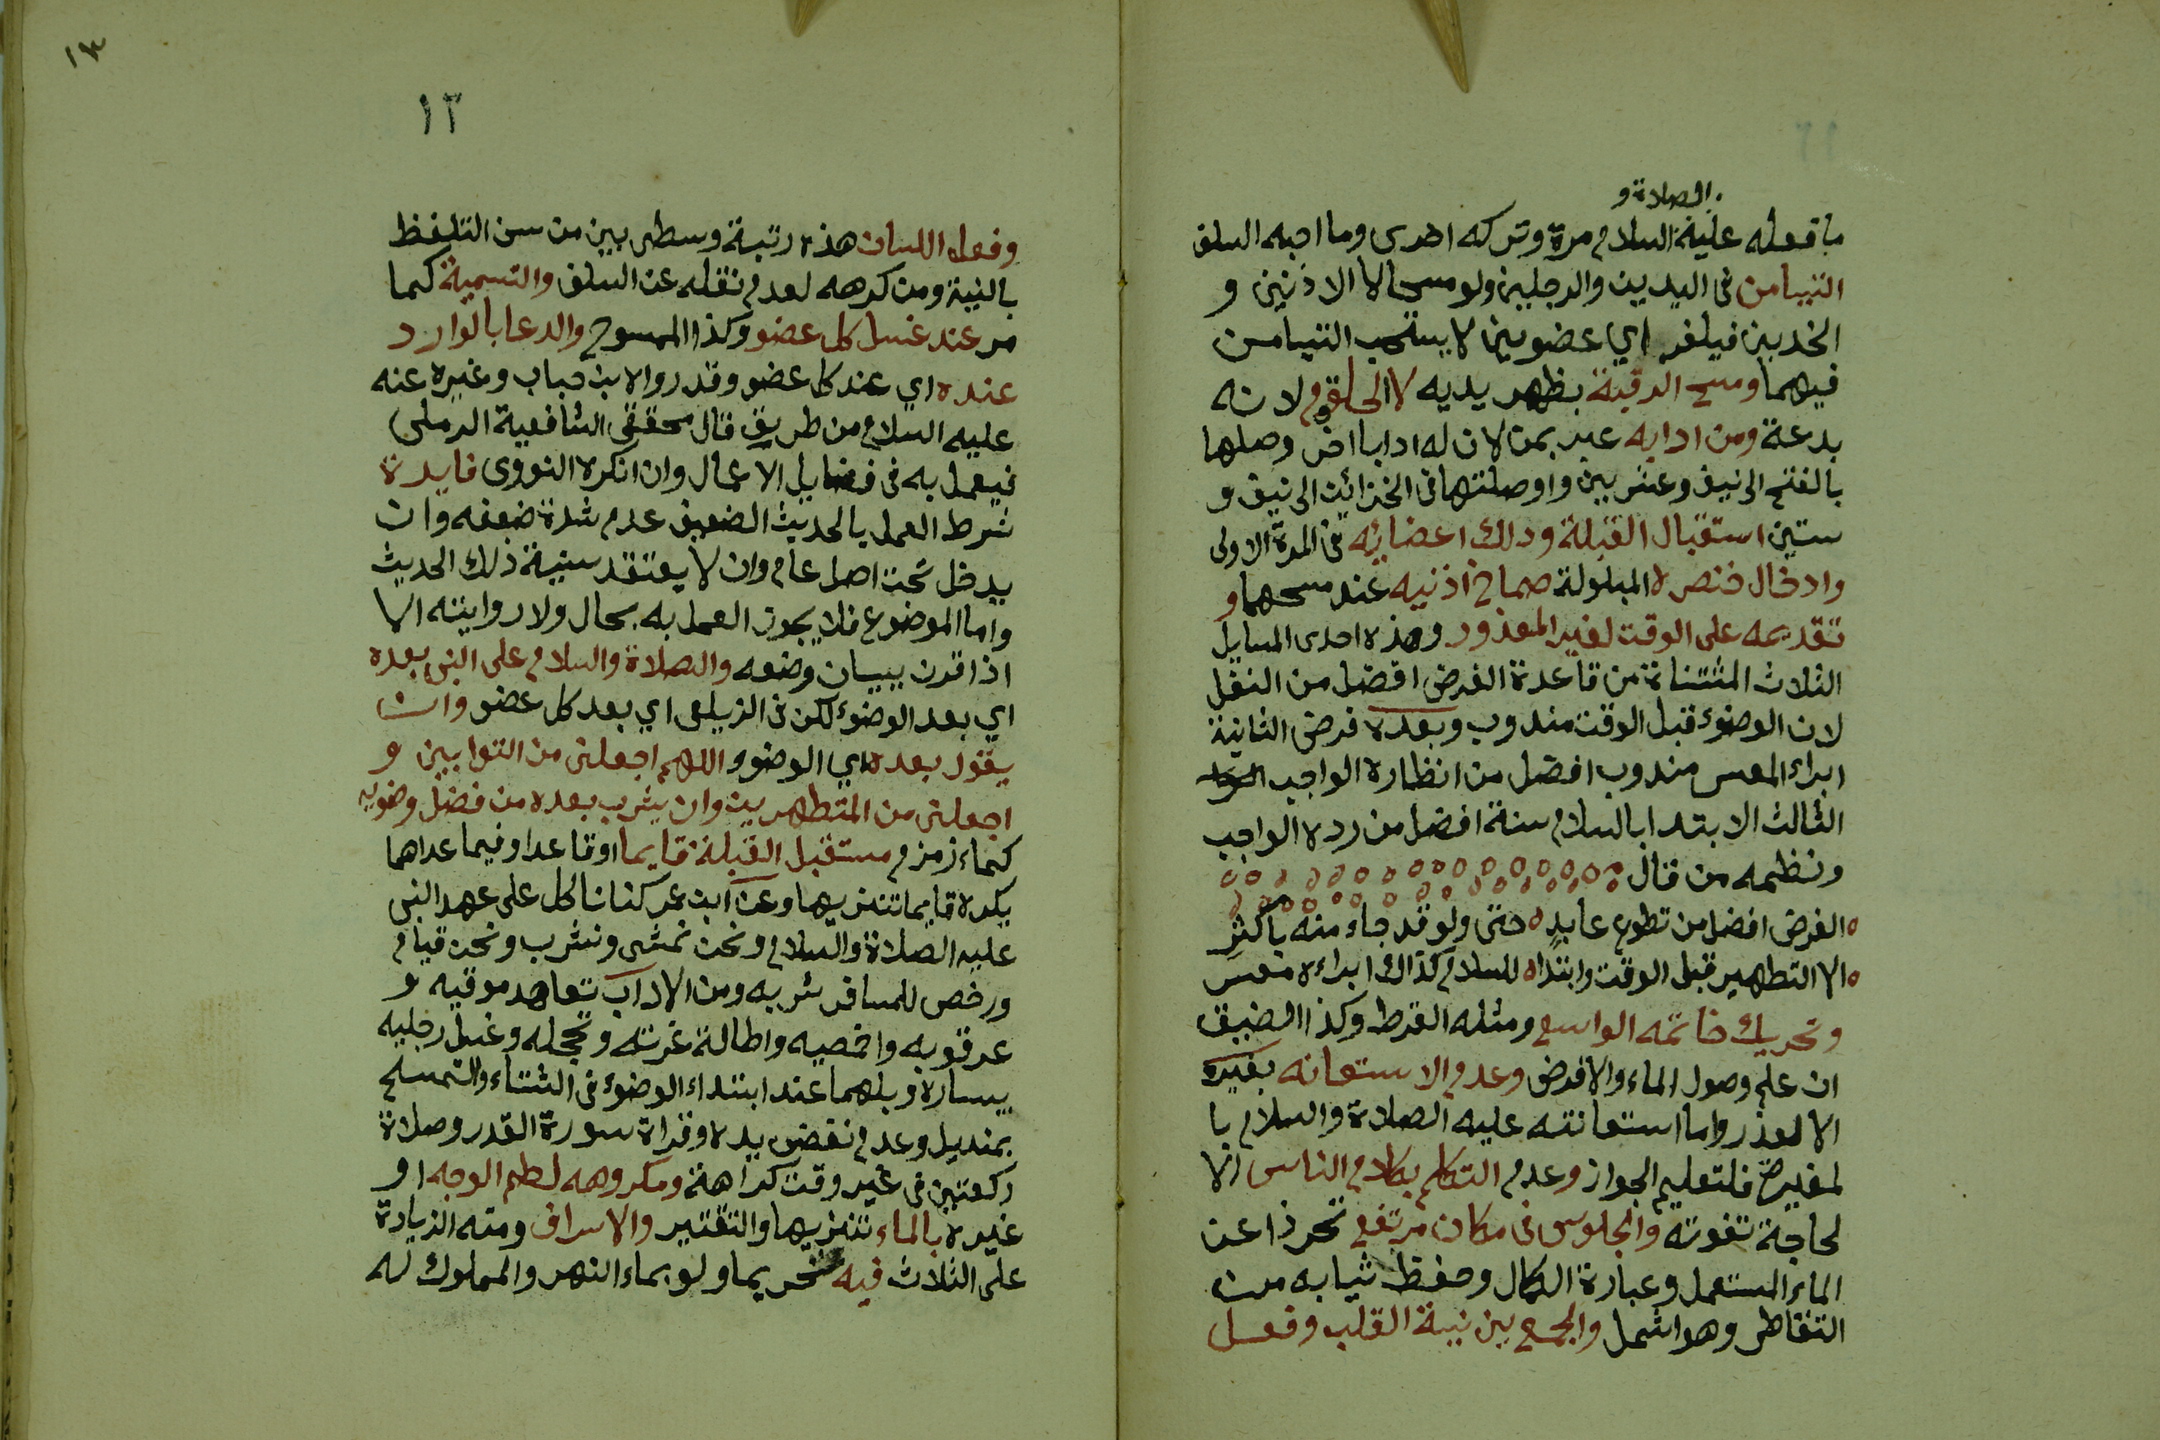 الصلاة و
ما فعله عليه السلام مرة وتركه اخرى وما احبه السلف
التيامن فى اليدين والرجلين ولو مسحا لا الاذنين و
الخدين فيلغز اي عضوين لا يستحب التيامن
فيهما ومسح الرقبة بظهر يديه لا الحلقوم لانه
بدعة ومن ادابه عبر بمن لان له ادابا اخر وصلها
بالفتح الى نيف وعشرين واوصلتها فى الخزائن الى نيف و
ستين استقبال القبلة ودلك اعضائه فى المرة الاولى
وادخال خنصره المبلولة صماخ اذنيه عند مسحهما و
تقديمه على الوقت لغير المعذور وهذه احدى المسايل
الثلاث المستثناة من قاعدة الفرض افضل من النفل
لان الوضوء قبل الوقت مندوب وبعده فرض الثانية
ابراء المعسر مندوب افضل من انظاره الواجب
الثالث الابتدا بالسلام سنة افضل من رده الواجب
ونظمه من قال
الفرض افضل من تطوع عابد ه حتى ولو قد جاء منه باكثر
الا التطهير قبل الوقت وابتداه للسلام كذاك ابراءه معسر
وتحريك خاتمه الواسع ومثله القرط وكذا الضيق
ان علم وصول الماء والا فرض وعدم الاستعانة بغيره
الا لعذر واما استعانته عليه الصلاة والسلام با
لمغيرة فلتعليم الجواز وعدم التكلم بكلام الناس الا
لحاجة تفوته والجلوس فى مكان مرتفع تحرزا عن
الماء المستعمل وعبارة الكمال وحفظ ثيابه من
التقاطر وهو اشمل والجمع بين نية القلب وفعل
١٣
١٢
وفعل اللسان هذه رتبة وسطى بين من سن التلفظ
بالنية ومن كرهه لعدم نقله عن السلف والتسمية كما
مر عند غسل كل عضو وكذا الممسوح والدعا بالوارد
عنده اي عند كل عضو وقد رواه ابن حبان وغيره عنه
عليه السلام من طريق قال محقق الشافعية الرملى
فيعمل به فى فضايل الاعمال وان انكره النووى فايدة
شرط العمل بالحديث الضعيف عدم شدة ضعفه وان
يدخل تحت اصل عام وان لا يعتقد سنية ذلك الحديث
واما الموضوع فلا يجوز العمل به بحال ولا روايته الا
اذا قرن ببيان وضعه والصلاة والسلام على النبى بعده
اي بعد الوضوء لكن فى الزيلعى اي بعد كل عضو وان
يقول بعده اي الوضوء اللهم اجعلنى من التوابين و
اجعلنى من المتطهرين وان يشرب بعده من فضل وضويه
كماء زمزم مستقبل القبلة قايما او قاعدا وفيما عداهما
يكره قايما تنزيها وعن ابن عمر كنا ناكل على عهد النبى
عليه الصلاة والسلام ونحن نمشى ونشرب ونحن قيام
ورخص للمسافر شربه ومن الاداب تعاهد موقيه و
عرقوبه واخمصيه واطالة غرته وتحجيله وغسل رجليه
بيساره وبلهما عند ابتداء الوضوء فى الشتاء والتمسح
بمنديل وعدم نفض يده وقراة سورة القدر وصلاة
ركعتين فى غير وقت كراهة ومكروهه لطم الوجه او
غيره بالماء تنزيها والتقتير والاسراف ومنه الزيادة
على الثلاث فيه تحريما ولو بماء النهر والمملوك له